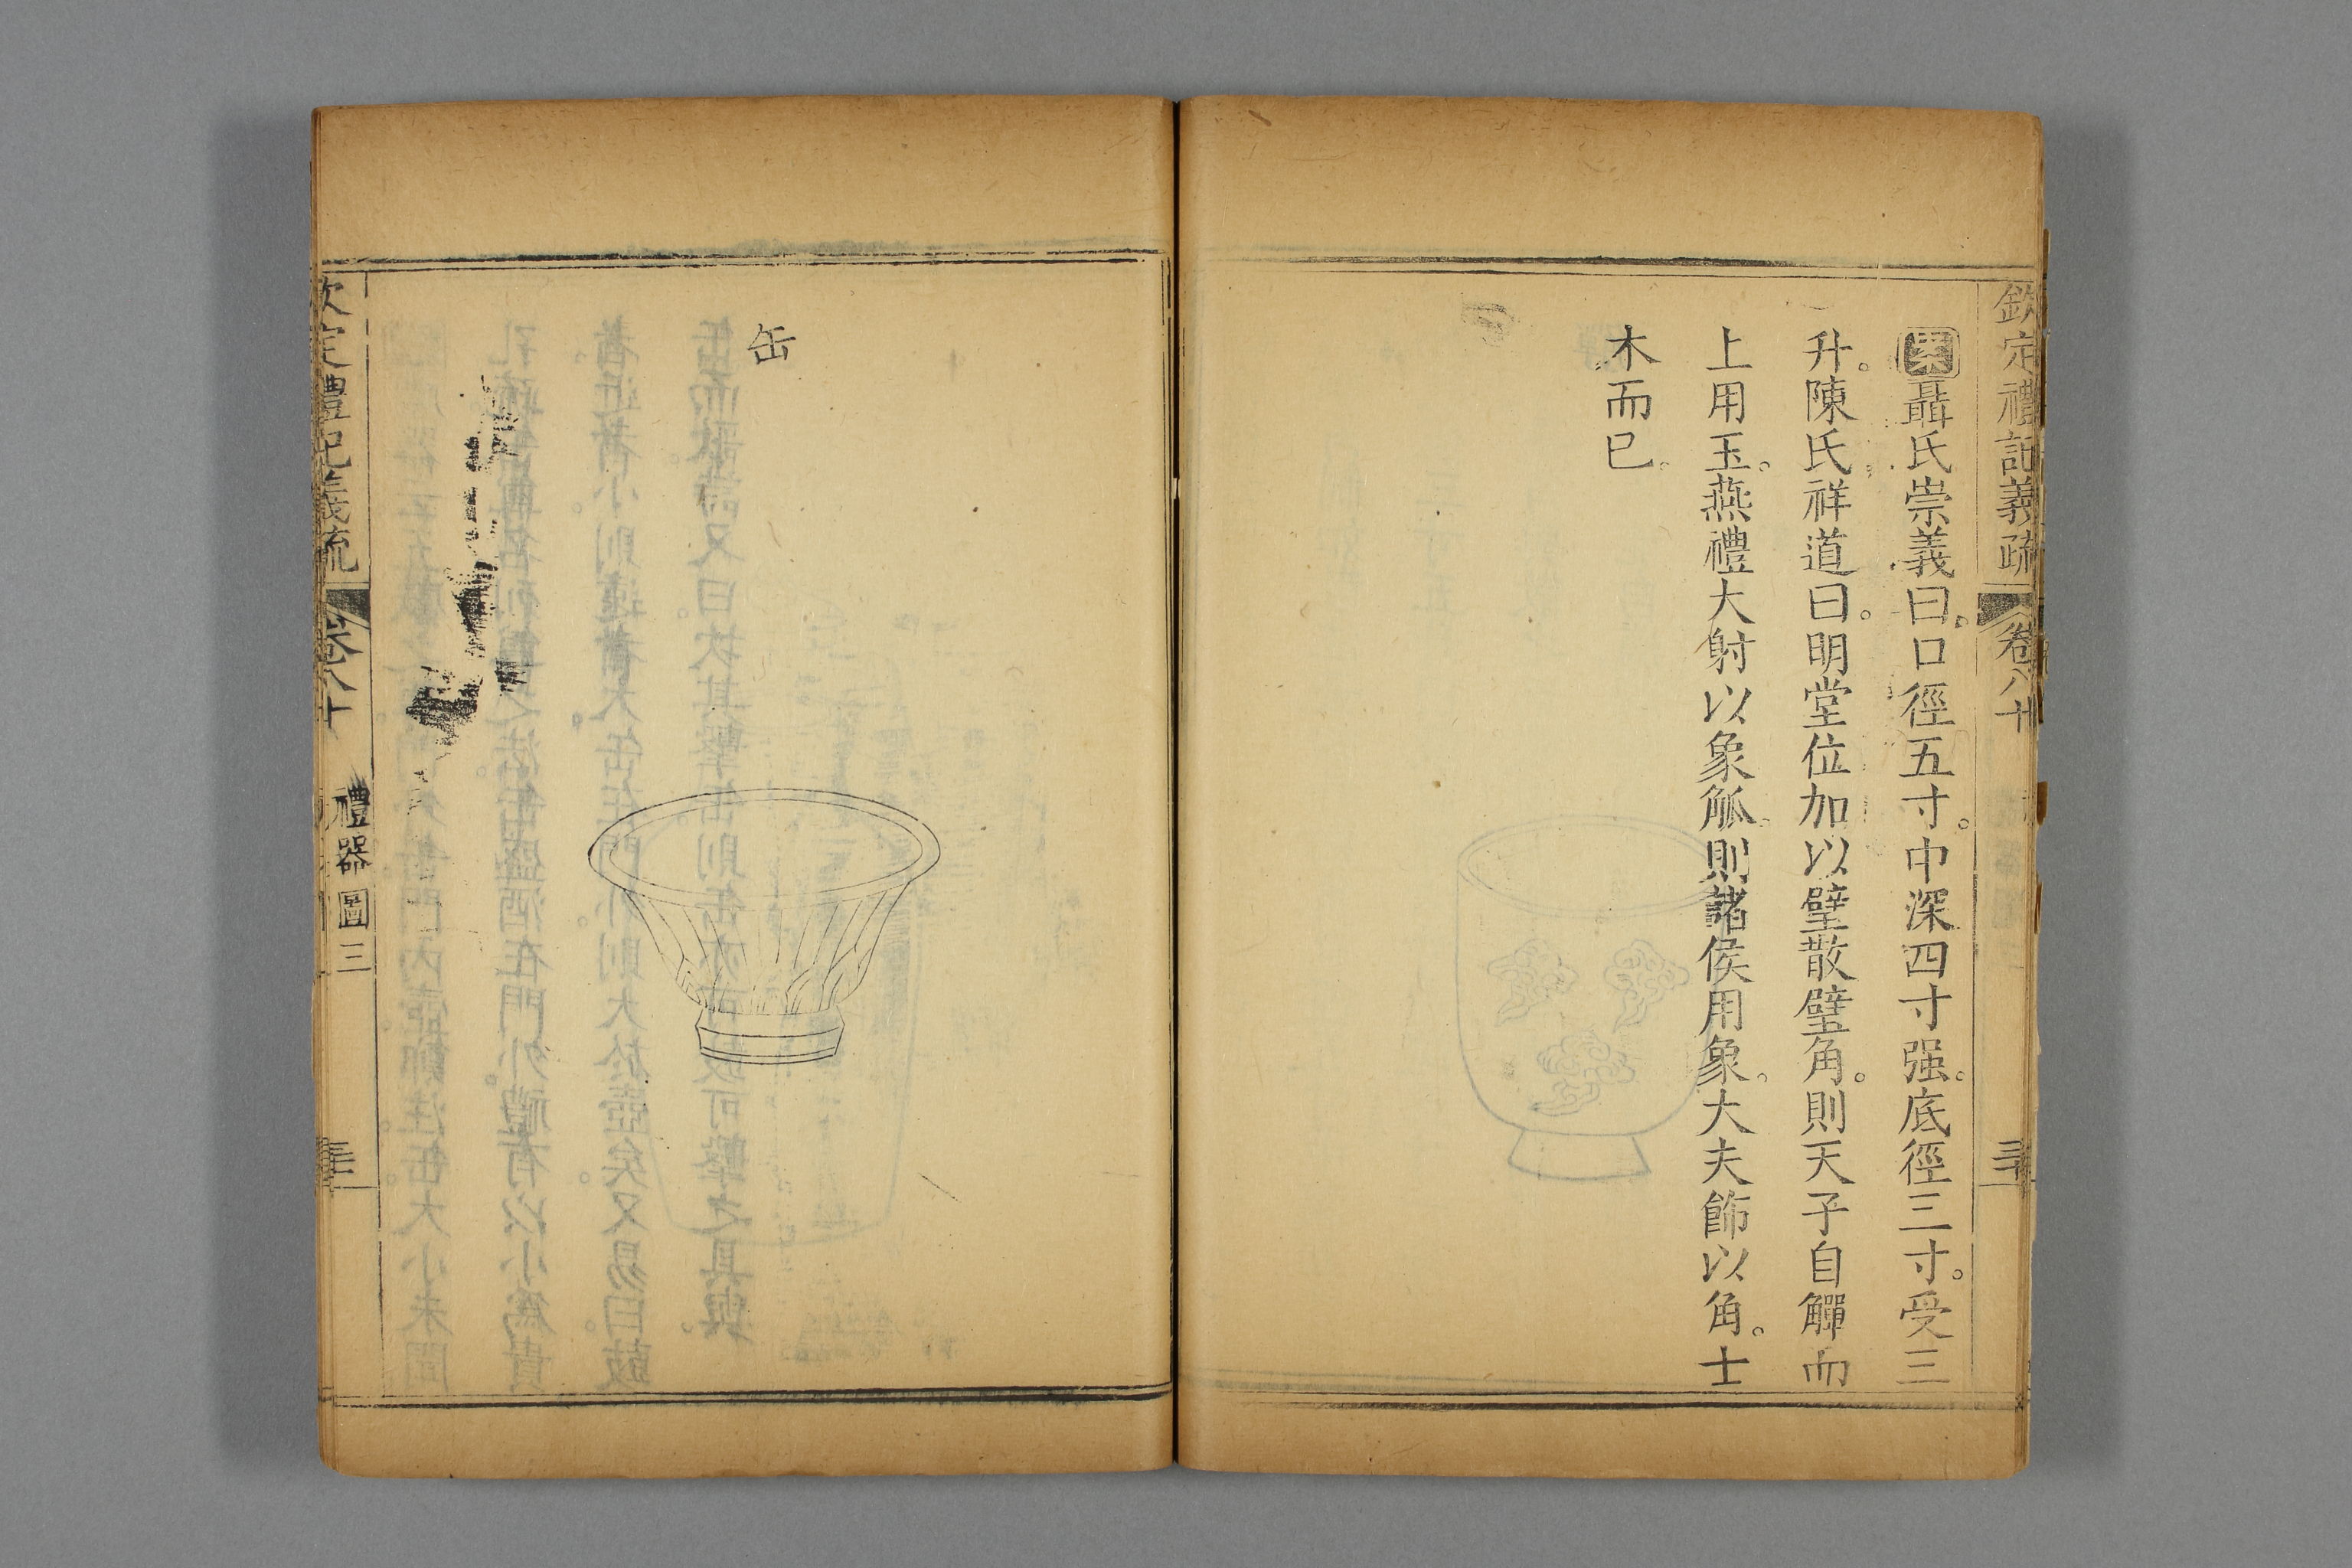 欽定禮記義疏 卷八十
案聶氏崇義曰。口徑五寸。中深四寸强。底徑三寸。受三
升。陳氏祥道曰。明堂位加以璧散璧角。則天子自觶而
上用玉。燕禮大射以象觚。則諸侯用象。大夫飾以角。士
木而已。
缶
欽定禮記義疏 卷八十 禮器圖三